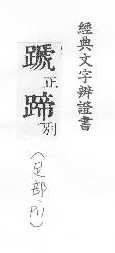 經典文字辨證書
蹏正
蹄別
(足部、P11)